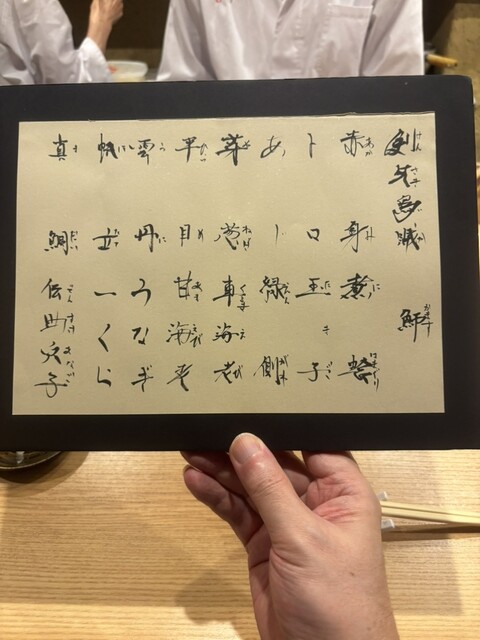 剣先烏賊 魳
赤身 煮蛤
トロ 玉子
あじ 縁側
芽葱 車海老
平目 甘海老
雲丹 うなぎ
帆立 いくら
真鯛 伝助穴子